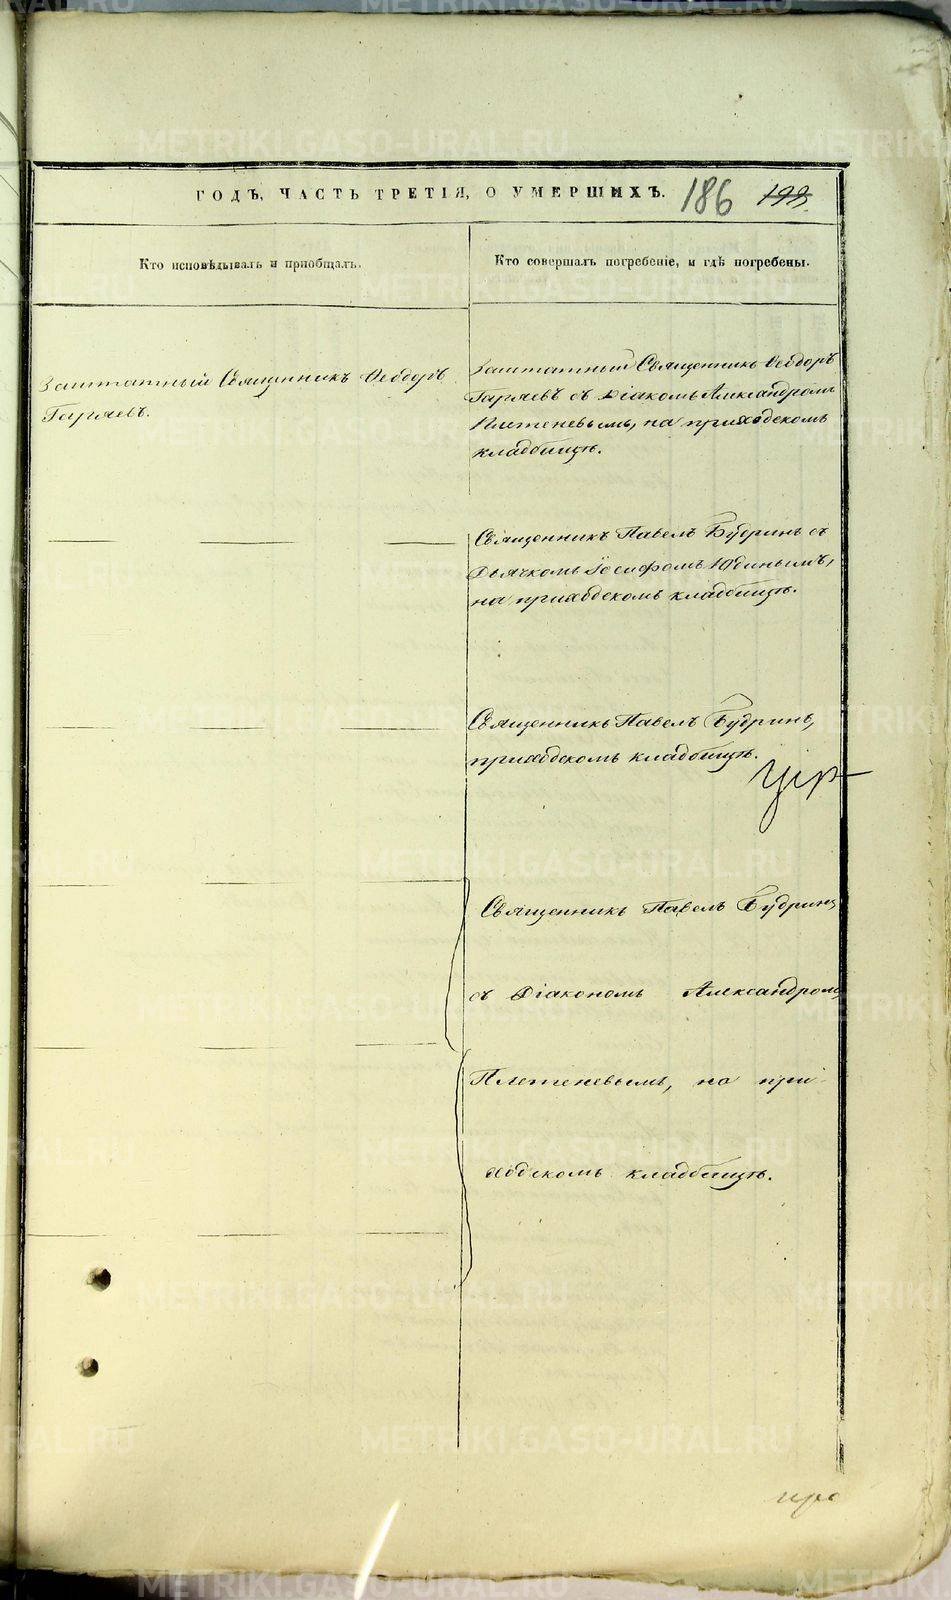 ГОДЪ, ЧАСТЬ ТРЕТІЯ, О УМЕРШИХЪ. 186 199.
Кто исповѣдывалъ и пріобщалъ.
Кто совершалъ погребеніе, и гдѣ погребены.
Заштатный Священникъ Ѳеодоръ
Гаряевъ.
Заштатный Священникъ Ѳеодоръ
Гаряевъ съ Діакомъ Александромъ
Плетеневымъ, на приходскомъ
кладбищѣ.
Священникъ Павелъ Будринъ съ
Дьячкомъ Іосифомъ Юдинымъ,
на приходскомъ кладбищѣ.
Священникъ Павелъ Будринъ,
приходскомъ кладбищѣ.
Священникъ Павелъ Будринъ
съ Діакономъ Александромъ
Плетеневымъ, на при-
ходскомъ кладбищѣ.
METRIKI.GASO-URAL.RU